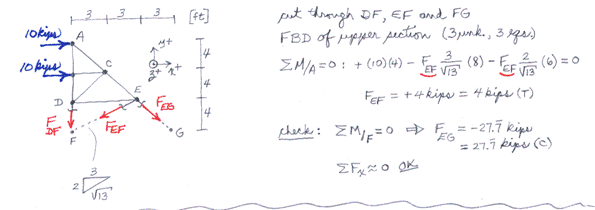 3 3 3 [ft]
10 kips
A
10 kips
C
y+
x+
z+
4
4
4
D
E
F DF
F EF
F EG
F
G
3
2
√13
cut through DF, EF and FG
FBD of upper section (3 unk., 3 eqs.)
ΣM/A=0: +(10)(4) - F EF 3/√13 (8) - F EF 2/√13 (6) = 0
F EF = +4 kips = 4 kips (T)
check: ΣM/F=0 ⇒ F EG = -27.7 kips
= 27.7 kips (C)
ΣFx ≈ 0 OK